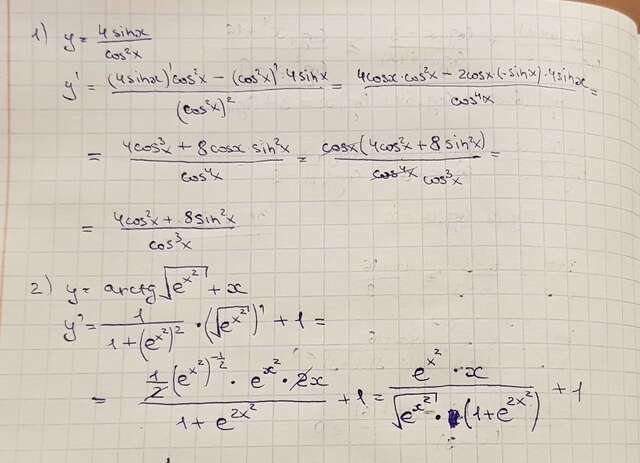 1) y = 4sinx / cos²x
y' = ((4sinx)' cos²x − (cos²x)' · 4sinx) / (cos²x)² = (4cosx · cos²x − 2cosx(-sinx) · 4sinx) / cos⁴x =
= (4cos³x + 8cosx sin²x) / cos⁴x = cosx(4cos²x + 8sin²x) / cos⁴x cos³x =
= (4cos²x + 8sin²x) / cos³x
2) y = arctg √(e^(x²)) + x
y' = 1 / (1 + (e^(x²))²) · (√(e^(x²)))' + 1 =
= (1/2 (e^(x²))^(-1/2) · e^(x²) · 2x) / (1 + e^(2x²)) + 1 = (e^(x²) · x) / (√(e^(x²)) · (1 + e^(2x²))) + 1